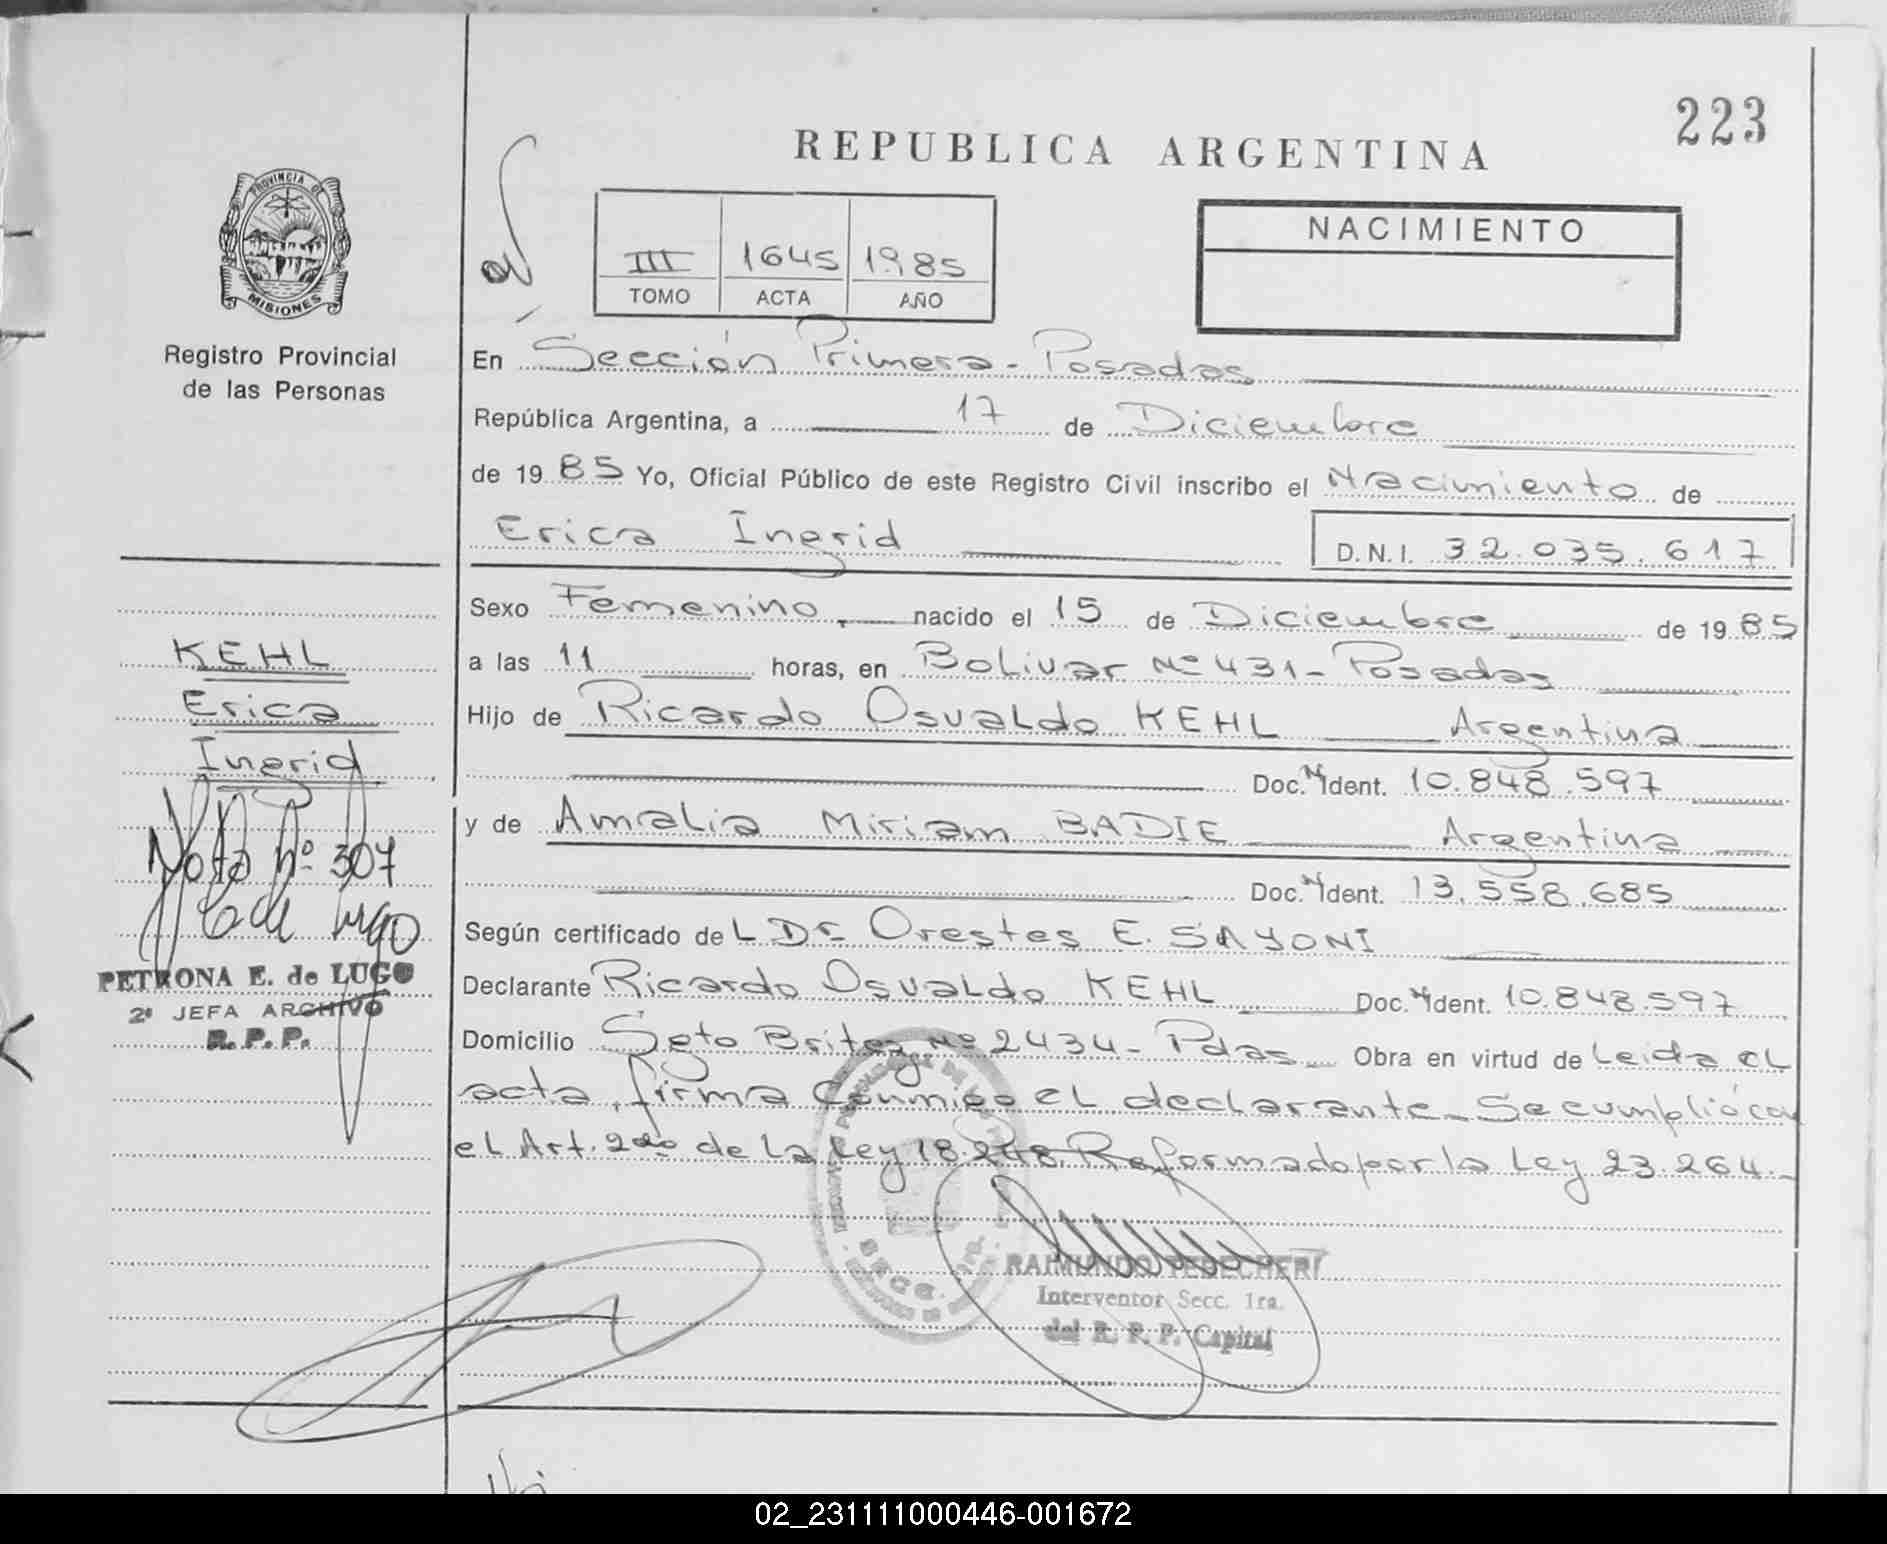 223
REPUBLICA ARGENTINA
PROVINCIA DE
MISIONES
Registro Provincial
de las Personas
III 1645 1985
TOMO ACTA AÑO
NACIMIENTO
En Sección Primera - Posadas
República Argentina, a 17 de Diciembre
de 1985 Yo, Oficial Público de este Registro Civil inscribo el Nacimiento de
Erica Ingrid D.N.I. 32.035.617
Sexo Femenino, nacido el 15 de Diciembre de 1985
a las 11 horas, en Bolivar Nº 431 - Posadas
Hijo de Ricardo Osvaldo KEHL Argentina
Doc. Ident. 10.848.597
y de Amalia Miriam BADIE Argentina
Doc. Ident. 13.558.685
Según certificado de L Dr. Orestes E. SAYONI
Declarante Ricardo Osvaldo KEHL Doc. Ident. 10.848.597
Domicilio Sgto Britez Nº 2434 - Pdas Obra en virtud de Leida el
acta, firma conmigo el declarante - Se cumplió con
el Art. 2do de la Ley 18.248 Reformado por la Ley 23.264.-
KEHL
Erica
Ingrid
Nota nº 307
de Lugo
PETRONA E. de LUGO
2º JEFA ARCHIVO
R. P. P.
RAIMUNDO
Interventor Secc. 1ra.
del R. P. P. Capital
02_231111000446-001672